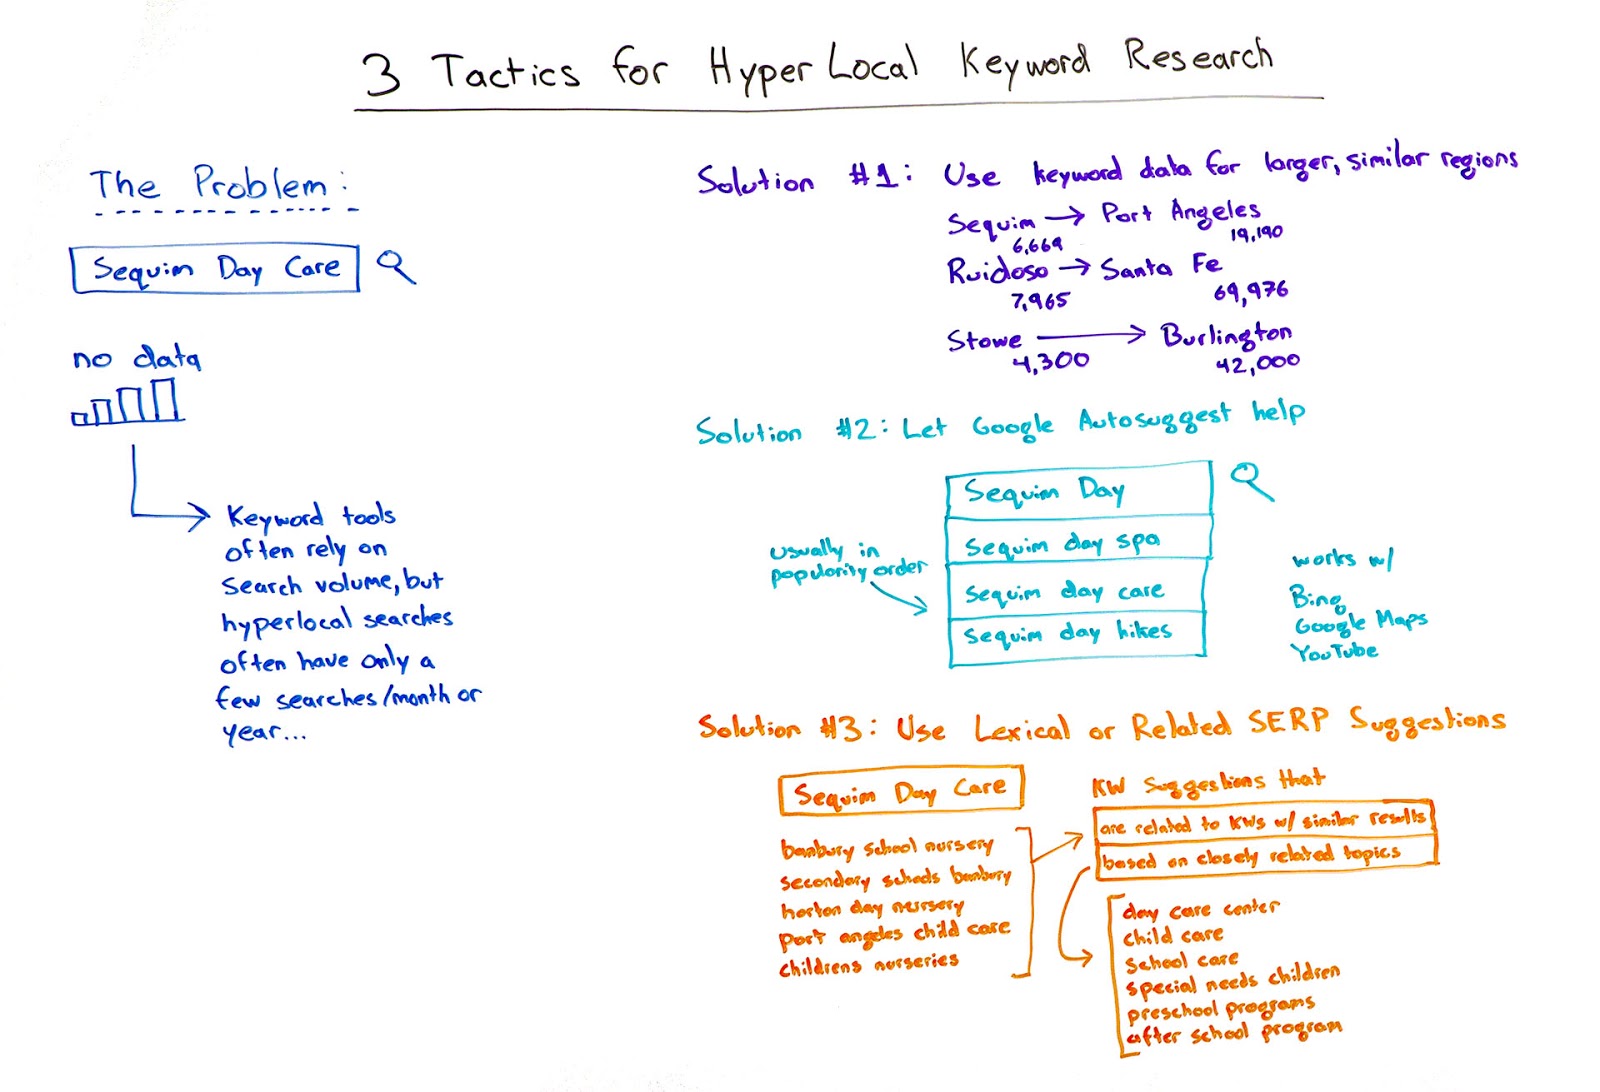 3 Tactics for Hyper Local Keyword Research
The Problem:
Sequim Day Care
no data
Keyword tools
often rely on
search volume, but
hyperlocal searches
often have only a
few searches/month or
year...
Solution #1: Use keyword data for larger, similar regions
Sequim → Port Angeles
6,669 19,190
Ruidoso → Santa Fe
7,965 69,976
Stowe → Burlington
4,300 42,000
Solution #2: Let Google Autosuggest help
Sequim Day
sequim day spa
sequim day care
sequim day hikes
usually in
popularity order
works w/
Bing
Google Maps
YouTube
Solution #3: Use Lexical or Related SERP Suggestions
Sequim Day Care
banbury school nursery
secondary schools banbury
horton day nursery
port angeles child care
childrens nurseries
KW Suggestions that
are related to KWs w/ similar results
based on closely related topics
day care center
child care
school care
special needs children
preschool programs
after school program